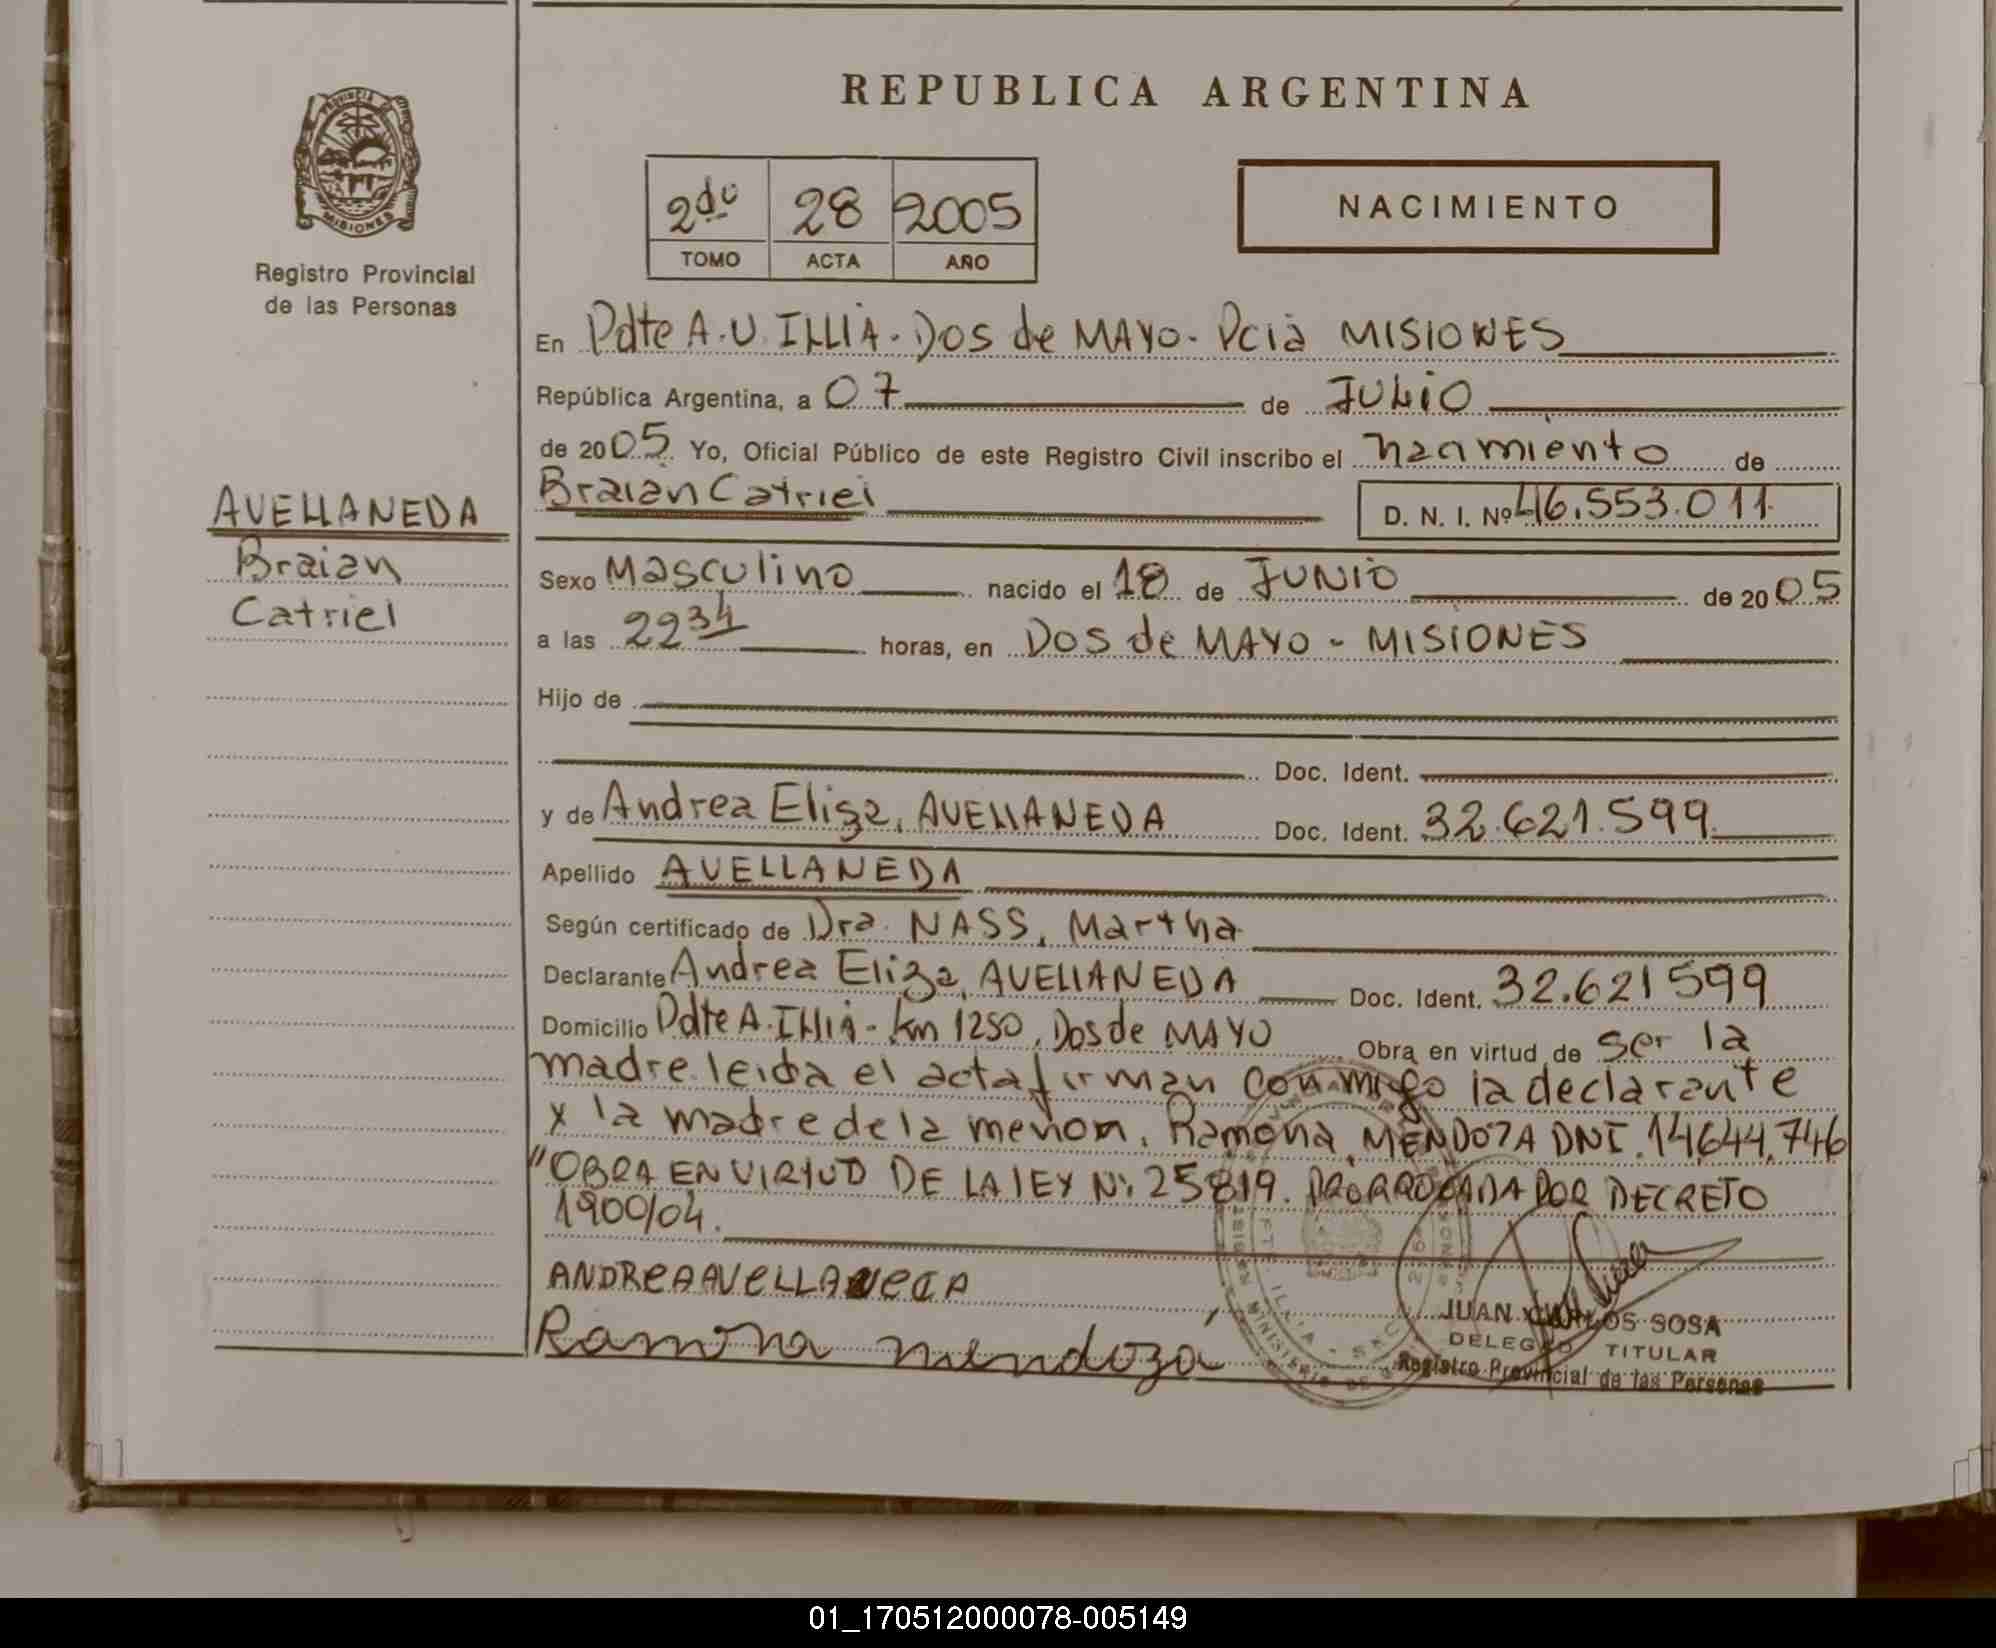 REPUBLICA ARGENTINA
PROVINCIA
MISIONES
Registro Provincial
de las Personas
2do 28 2005
TOMO ACTA AÑO
NACIMIENTO
En Pdte A.U. ILLIA - Dos de MAYO - Pcia MISIONES
República Argentina, a 07 de JULIO
de 2005 Yo, Oficial Público de este Registro Civil inscribo el nacimiento de
Braian Catriel D. N. I. Nº 46.553.011
AVELLANEDA
Braian
Catriel
Sexo Masculino nacido el 18 de JUNIO de 2005
a las 22 34 horas, en Dos de MAYO - MISIONES
Hijo de
Doc. Ident.
y de Andrea Eliza, AVELLANEDA Doc. Ident. 32.621.599
Apellido AVELLANEDA
Según certificado de Dra. NASS, Martha
Declarante Andrea Eliza, AVELLANEDA Doc. Ident. 32.621599
Domicilio Pdte A. Illia - km 1250, Dos de MAYO Obra en virtud de ser la
madre leida el acta firman conmigo la declarante
y la madre de la menor, Ramona, MENDOZA DNI. 14,644,746
"OBRA EN VIRTUD DE LA LEY Nº: 25819. PRORROGADA POR DECRETO
1900/04.
ANDREA AVELLANEDA
Ramona mendoza
JUAN CARLOS SOSA
DELEGADO TITULAR
Registro Provincial de las Personas
01_170512000078-005149